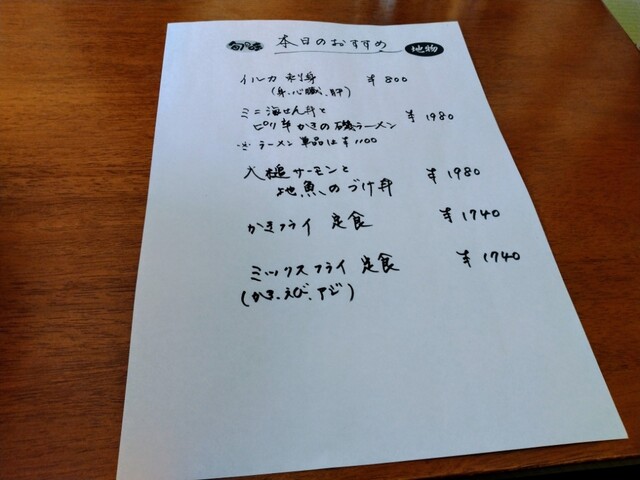 本日のおすすめ 地物
イルカ 刺身 ¥800
(身、心臓、肝)
ミニ海せん丼と
ピリ辛かきの磯ラーメン ¥1980
※ ラーメン単品は¥1100
大槌サーモンと
地魚のづけ丼 ¥1980
かきフライ 定食 ¥1740
ミックスフライ 定食 ¥1740
(かき、えび、アジ)